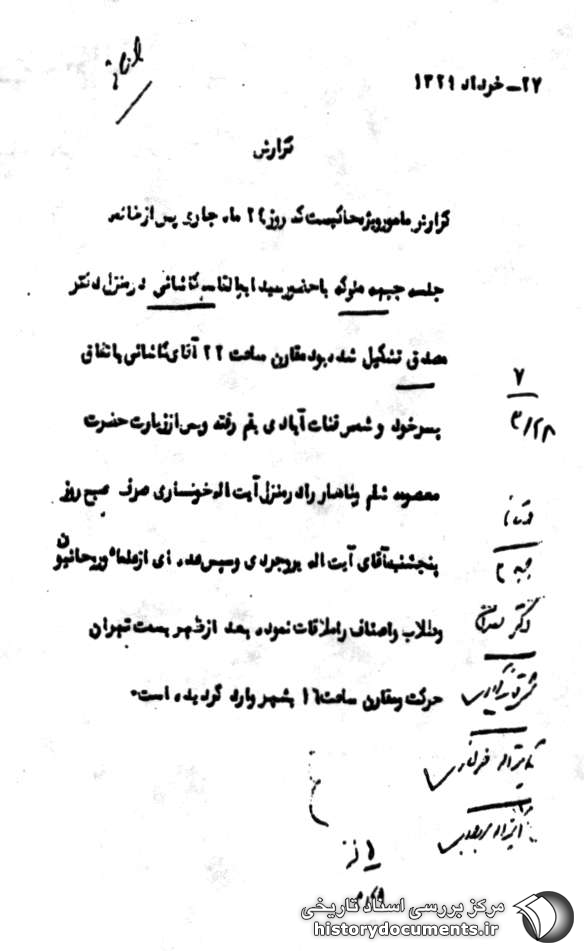 ۲۷ـ خرداد ۱۳۲۹
گزارش
گزارش مامور ویژه حاکیست که روز ۲۴ ماه جاری پس از خاتمه
جلسه جبهه ملی که با حضور سید ابوالقاسم کاشانی در منزل دکتر
مصدق تشکیل شده بود مقارن ساعت ۲۲ آقای کاشانی باتفاق
پسر خود و شمس قنات آبادی بقم رفته و پس از زیارت حضرت
معصومه شام و ناهار را در منزل آیت اله خونساری صرف صبح روز
پنجشنبه آقای آیت اله بروجردی و سپس عده ای از علماء و روحانیون
و طلاب و اصناف را ملاقات نموده بعد از ظهر بسمت تهران
حرکت و مقارن ساعت ۱۶ بشهر وارد گردیده است.
۷
۳/۲۸
مرکز بررسی اسناد تاریخی
historydocuments.ir